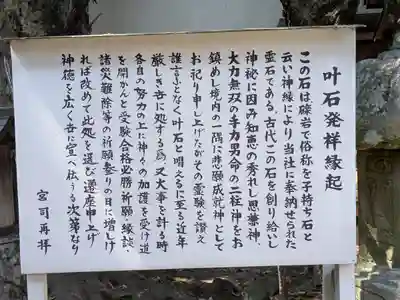 叶石発祥縁起
この石は礫岩で俗称を子持ち石と
云い神縁により当社に奉納せられた
霊石である。古代この石を創り給いし
神秘に因み知恵の秀れし思兼神、
大力無双の手力男命の二柱神をお
鎮めし境内の一隅に悲願成就神として
お祀り申し上げたがその霊験を讃え
誰言うとなく叶石と唱えるに至る近年
厳しき世に処する為、又大事を計る時
各自の努力の上に神々の加護を受け道
を開かんと受験合格必勝祈願・縁談・
諸災難除等の祈願参りの日に増しけ
れば改めて此処を選び遷座申上げ
神徳を広く世に宣べ伝うる次第なり
宮司再拝